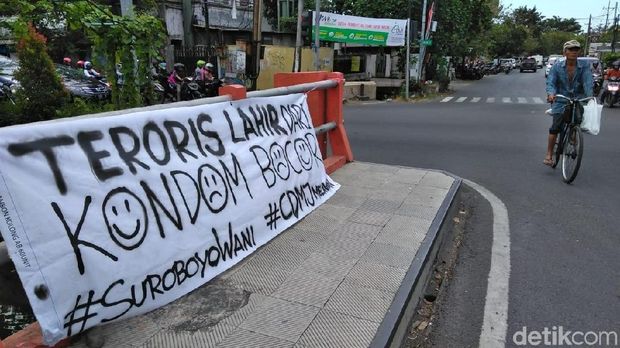 TERORIS LAHIR DARI
KONDOM BOCOR
#SUROBOYOWANI #CDMJ
detikcom